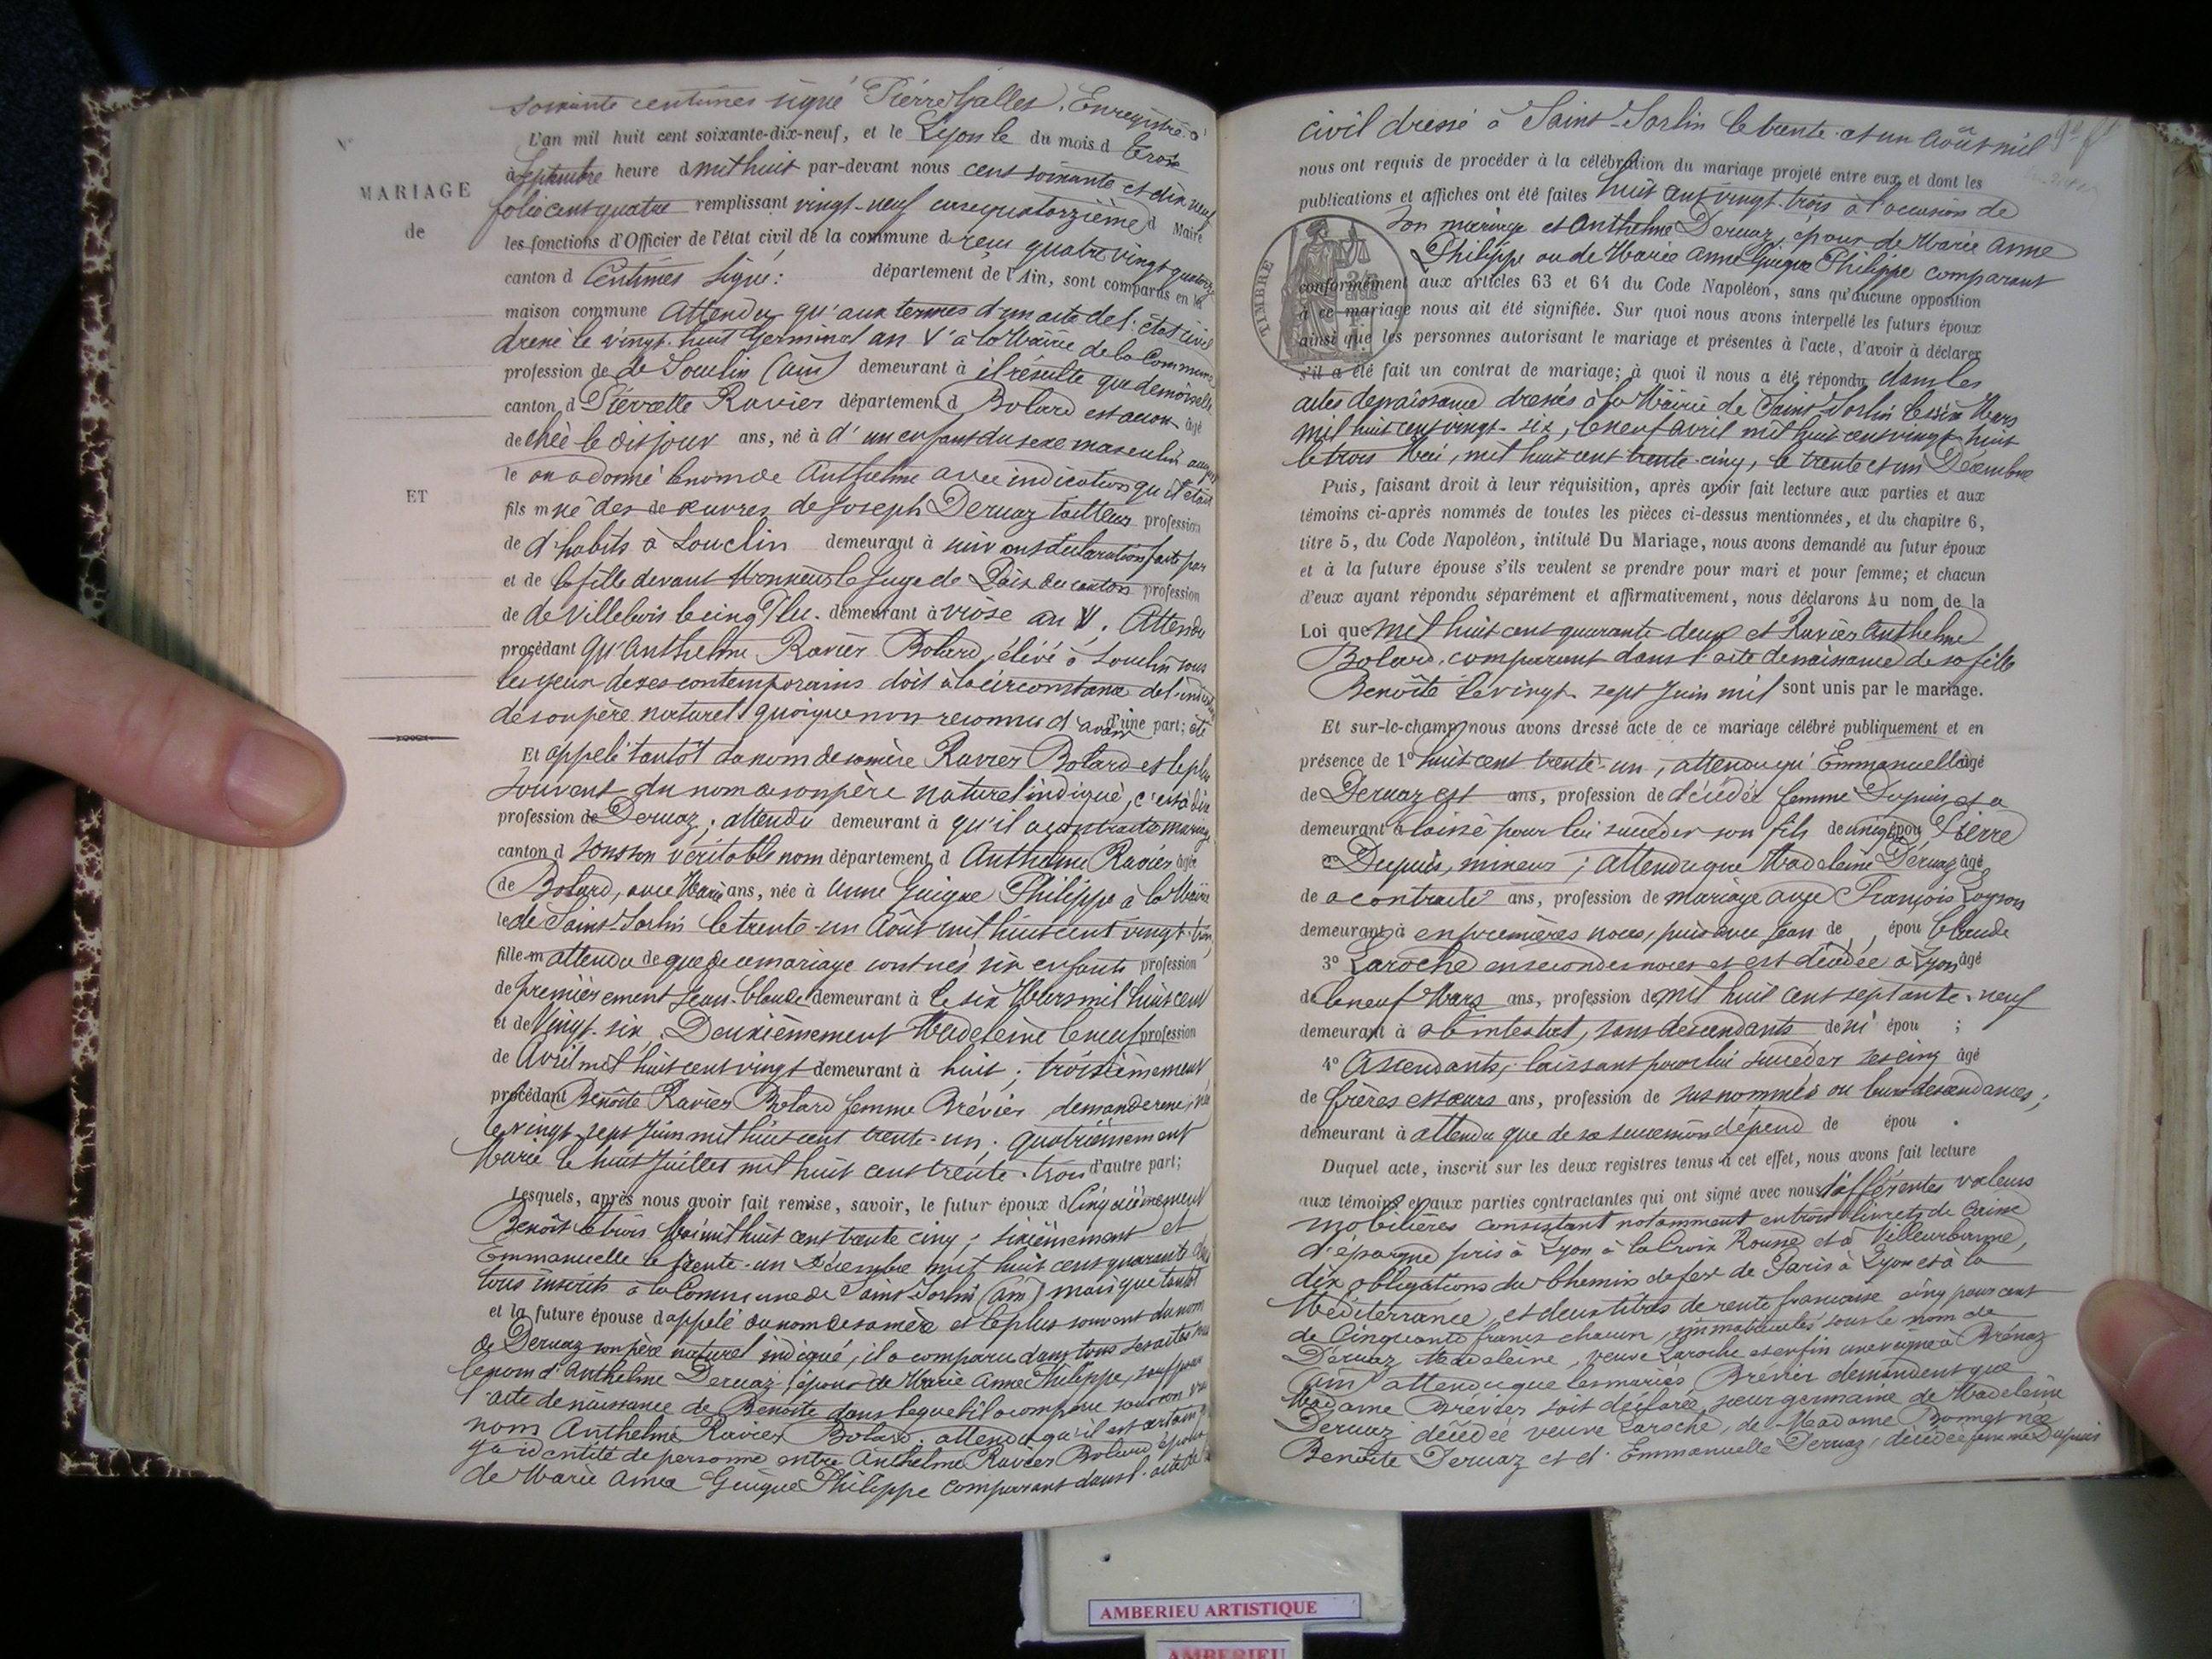 soixante centimes signé Pierre Galles. Enregistré à
L'an mil huit cent soixante-dix-neuf, et le Lyon le du mois d trois
à Septembre heure d mil huit par-devant nous cent soixante et dix neuf
MARIAGE
folio cent quatre remplissant vingt-neuf case quatorzième d Maire
de
les fonctions d'Officier de l'état civil de la commune d reçu quatre vingt quatorze
canton d Centimes signé : département de l'Ain, sont comparus en la
maison commune Attendu qu'aux termes d'un acte de l'état civil
dressé le vingt-huit Germinal an V à la Mairie de la Commune
profession de de Souclin (Ain) demeurant à il résulte que demoiselle
canton d Pierrette Ravier département d Bolard est accou- âgé
de chée le dit jour ans, né à d'un enfant du sexe masculin auquel
le on a donné le nom de Anthelme avec indication qu'il était
ET
fils m né des de œuvres de Joseph Dervaz tailleur profession
de d'habits à Souclin demeurant à suivant déclaration faite par
et de la fille devant Monsieur le Juge de Paix du canton profession
de de Villebois le cinq Plu- demeurant à viôse an V. Attendu
procédant qu'Anthelme Ravier Bolard, élevé à Souclin sous
les yeux de ses contemporains doit à la circonstance de l'indication
de son père naturel quoique non reconnu d'avoir d'une part; été
Et appelé tantôt du nom de sa mère Ravier Bolard et le plus
souvent du nom de son père naturel indiqué, c'est à dire
profession de Dervaz; attendu demeurant à qu'il a contracté mariage
canton d sous son véritable nom département d Anthelme Ravier âgée
de Bolard, avec Marie ans, née à Anne Guigue Philippe à la Mairie
le de Saint-Sorlin le trente-un Août mil huit cent vingt-trois,
fille m attendu de que de ce mariage sont nés six enfants profession
de premièrement Jean-Claude demeurant à le six Mars mil huit cent
et de vingt-six, Deuxièmement Madeleine le neuf profession
de Avril mil huit cent vingt demeurant à huit; troisièmement
procédant Benoîte Ravier Bolard femme Brévier, demanderesse, née
le vingt sept Juin mil huit cent trente-un; quatrièmement
Marie le huit Juillet mil huit cent trente-trois d'autre part;
Lesquels, après nous avoir fait remise, savoir, le futur époux d Cinquièmement
Benoîte le trois Mai mil huit cent trente cinq; sixièmement et
Emmanuelle le trente-un Décembre mil huit cent quarante deux
tous inscrits à la Commune de Saint Sorlin (Ain) mais que tantôt
et la future épouse d appelé du nom de sa mère et le plus souvent du nom
de Dervaz son père naturel indiqué, il a comparu dans tous ses actes sous
le nom d'Anthelme Dervaz, époux de Marie Anne Philippe, sauf pour
l'acte de naissance de Benoîte dans lequel il a comparu sous son vrai
nom Anthelme Ravier Bolard; attendu qu'il est certain
qu'identité de personne entre Anthelme Ravier Bolard époux
de Marie Anne Guigue Philippe comparant dans l'acte de
civil dressé à Saint-Sorlin le trente et un Août mil
nous ont requis de procéder à la célébration du mariage projeté entre eux et dont les
publications et affiches ont été faites huit cent vingt-trois à l'occasion de
son mariage et Anthelme Dervaz, époux de Marie Anne
Philippe ou de Marie Anne Guigue Philippe comparant
TIMBRE
conformément aux articles 63 et 64 du Code Napoléon, sans qu'aucune opposition
à ce mariage nous ait été signifiée. Sur quoi nous avons interpellé les futurs époux
ainsi que les personnes autorisant le mariage et présentes à l'acte, d'avoir à déclarer
s'il a été fait un contrat de mariage; à quoi il nous a été répondu dans les
actes de naissance dressés à la Mairie de Saint-Sorlin le six Mars
mil huit cent vingt-six, le neuf avril mil huit cent vingt huit
le trois Mai, mil huit cent trente-cinq, le trente et un Décembre
Puis, faisant droit à leur réquisition, après avoir fait lecture aux parties et aux
témoins ci-après nommés de toutes les pièces ci-dessus mentionnées, et du chapitre 6,
titre 5, du Code Napoléon, intitulé Du Mariage, nous avons demandé au futur époux
et à la future épouse s'ils veulent se prendre pour mari et pour femme; et chacun
d'eux ayant répondu séparément et affirmativement, nous déclarons Au nom de la
Loi que mil huit cent quarante-deux et Ravier Anthelme
Bolard, comparant dans l'acte de naissance de sa fille
Benoîte le vingt-sept Juin mil sont unis par le mariage.
Et sur-le-champ nous avons dressé acte de ce mariage célébré publiquement et en
présence de 1° huit cent trente-un; attendu qu'Emmanuelle âgé
de Dervaz est ans, profession de décédée femme Dupuis et a
demeurant à laissé pour lui succéder son fils de unique épou Pierre
2° Dupuis, mineur; attendu que Madeleine Dervaz âgé
de a contracté ans, profession de mariage avec François
demeurant à en premières noces, puis avec Jean de épou Claude
3° Laroche en secondes noces et est décédée à Lyon âgé
de le neuf Mars ans, profession de mil huit cent septante-neuf
demeurant à ab intestat, sans descendants de ni épou ;
4° Ascendants, laissant pour lui succéder ses cinq âgé
de frères et sœurs ans, profession de sus nommés ou leurs descendances;
demeurant à attendu que de sa succession dépend de épou .
Duquel acte, inscrit sur les deux registres tenus à cet effet, nous avons fait lecture
aux témoins et aux parties contractantes qui ont signé avec nous différentes valeurs
mobilières consistant notamment en trois livrets de Caisse
d'épargne pris à Lyon à la Croix Rousse et à Villeurbanne,
dix obligations du Chemin de fer de Paris à Lyon et à la
Méditerranée, et deux titres de rente française cinq pour cent
de Cinquante francs chacun, immatriculés sous le nom de
Dervaz Madeleine, veuve Laroche et enfin une vigne à Brénaz
(Ain) attendu que les mariés Brévier demandent que
Madame Brévier soit déclarée sœur germaine de Madeleine
Dervaz décédée veuve Laroche, de Madame Bonnet née
Benoîte Dervaz et d'Emmanuelle Dervaz, décédée femme Dupuis
AMBERIEU ARTISTIQUE
AMBERIEU